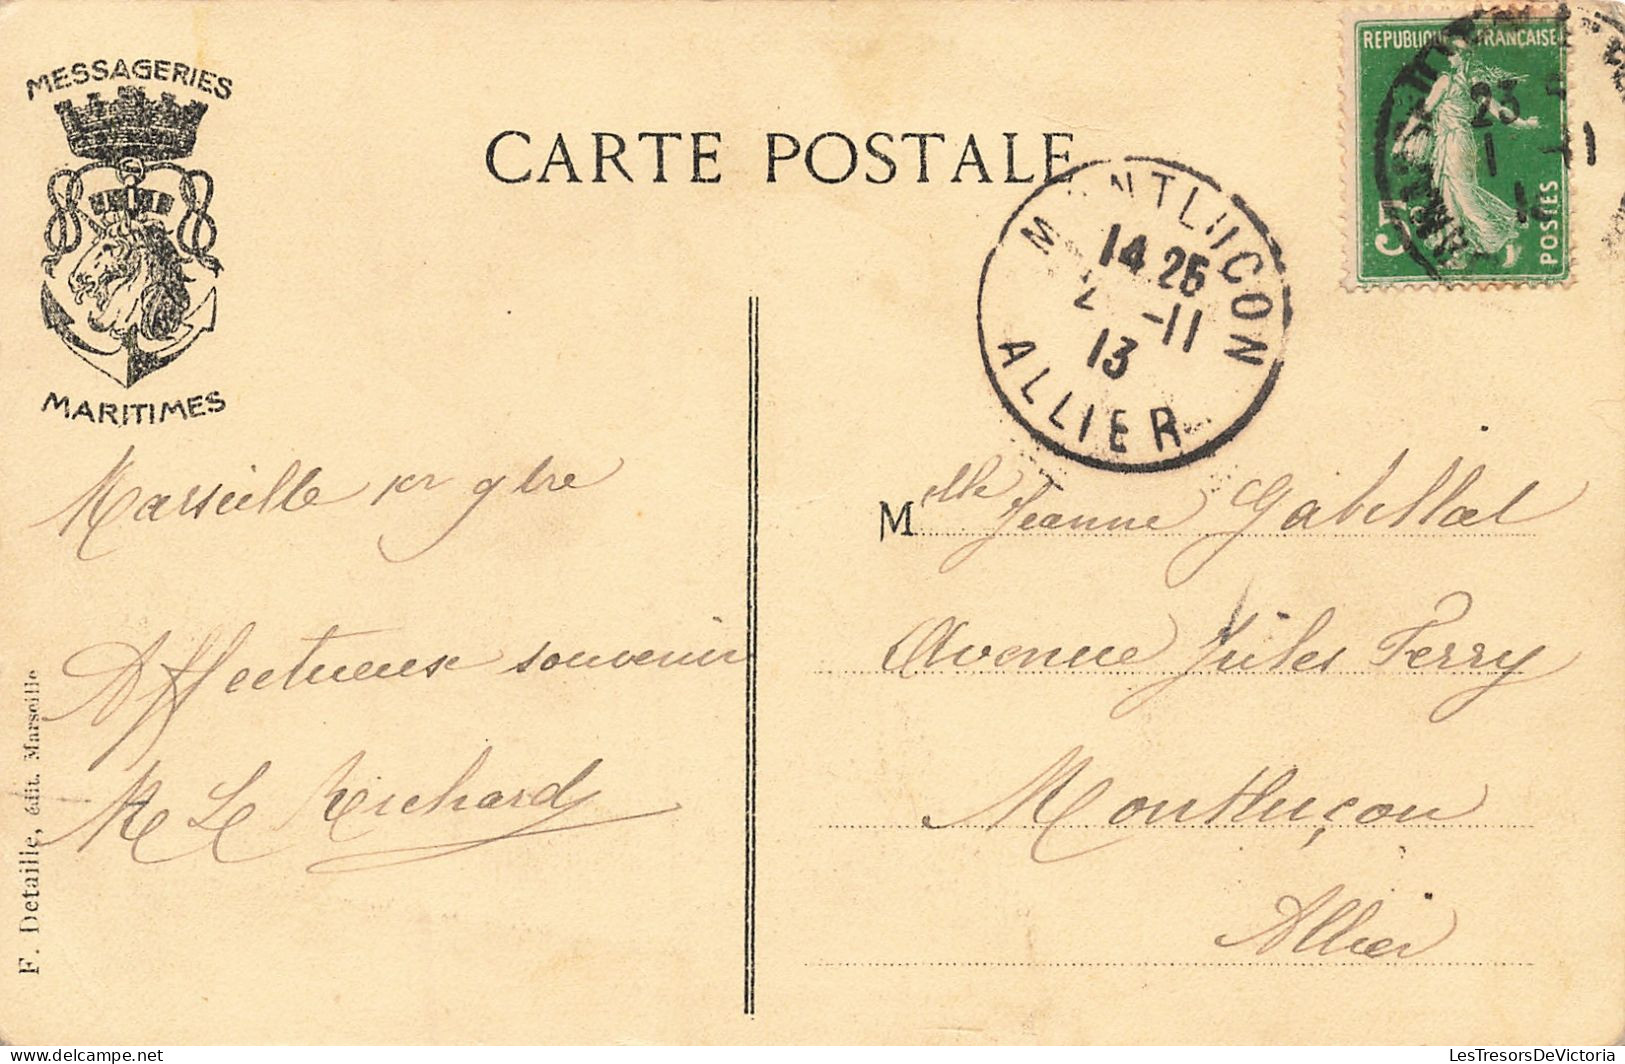 MESSAGERIES
MARITIMES
CARTE POSTALE
REPUBLIQUE FRANÇAISE
POSTES
5
23
1 11
MONTLUCON
14 25
2 -11
13
ALLIER
Marseille 1er 9bre
Affectueux souvenir
Me Le Richard
F. Detaille, édit. Marseille
Mlle Jeanne
Avenue Jules Ferry
Montluçon
Allier
Delcampe.net
LesTresorsDeVictoria